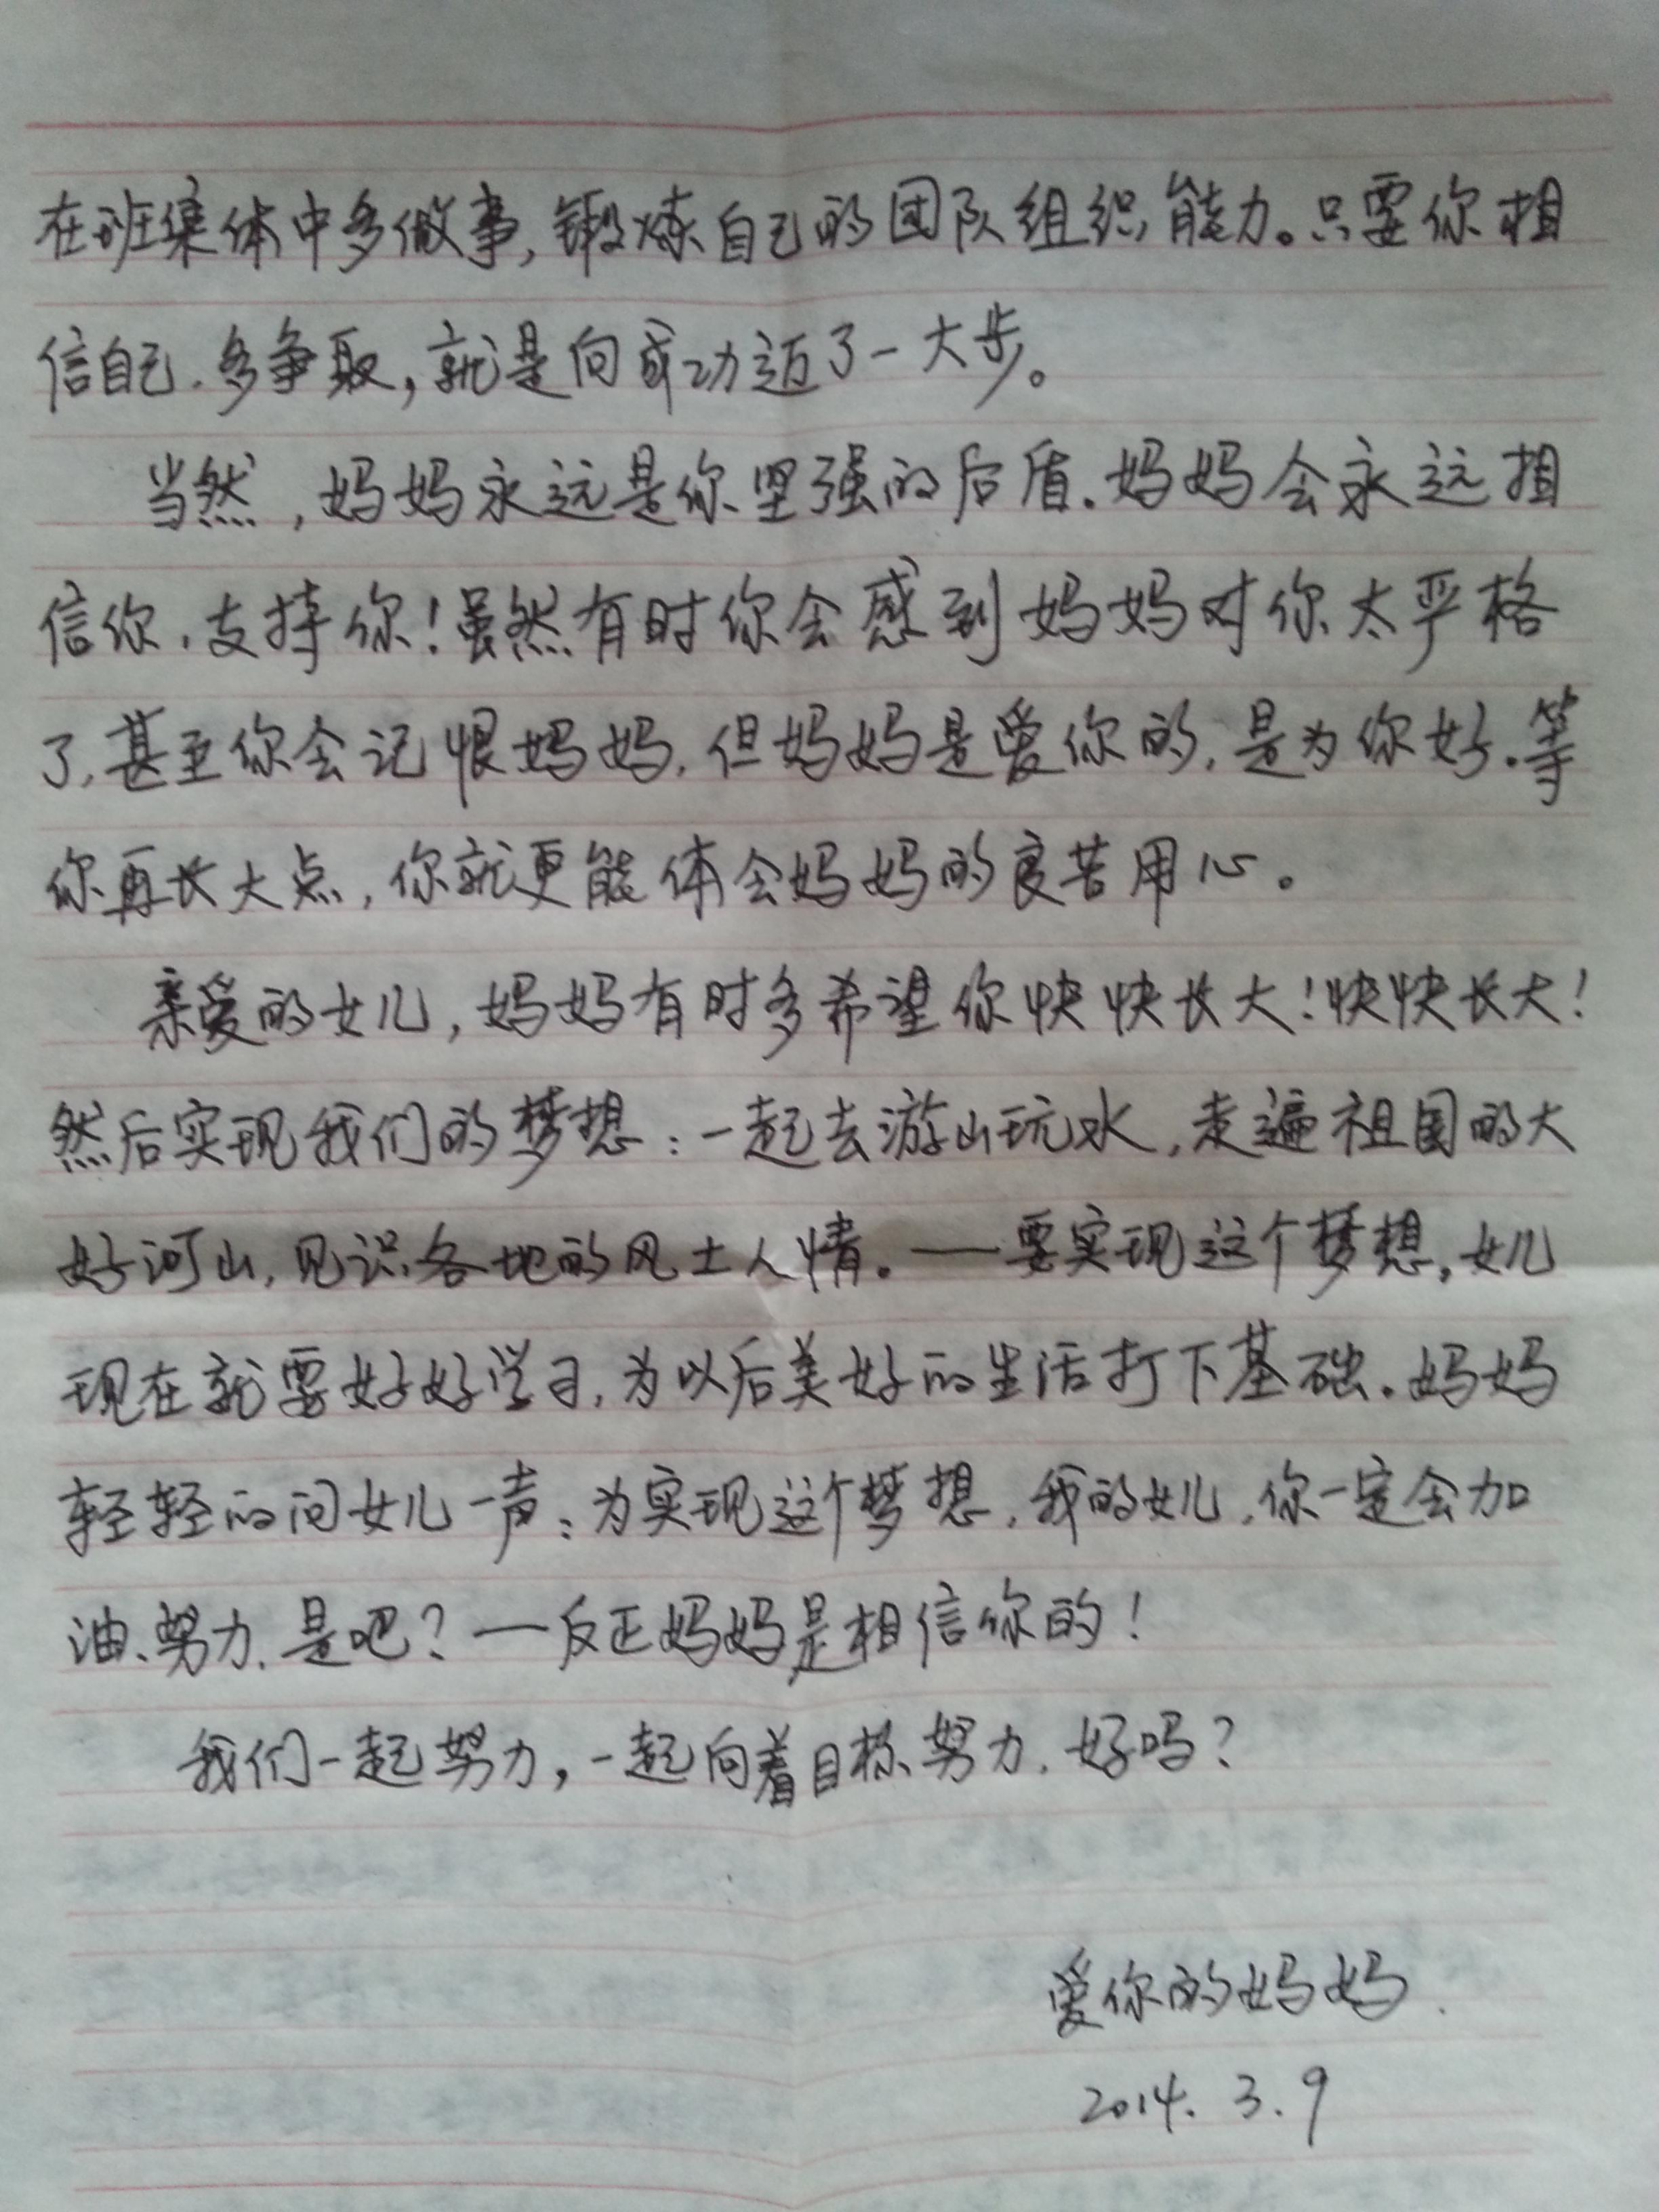 在班集体中多做事,锻炼自己的团队组织能力。只要你相
信自己.多争取,就是向成功迈了一大步。
当然,妈妈永远是你坚强的后盾.妈妈会永远相
信你,支持你!虽然有时你会感到妈妈对你太严格
了,甚至你会记恨妈妈,但妈妈是爱你的,是为你好.等
你再长大点,你就更能体会妈妈的良苦用心。
亲爱的女儿,妈妈有时多希望你快快长大!快快长大!
然后实现我们的梦想:一起去游山玩水,走遍祖国的大
好河山,见识各地的风土人情。——要实现这个梦想,女儿
现在就要好好学习,为以后美好的生活打下基础。妈妈
轻轻的问女儿一声:为实现这个梦想,我的女儿,你一定会加
油、努力,是吧?—反正妈妈是相信你的!
我们一起努力,一起向着目标努力,好吗?
爱你的妈妈.
2014.3.9